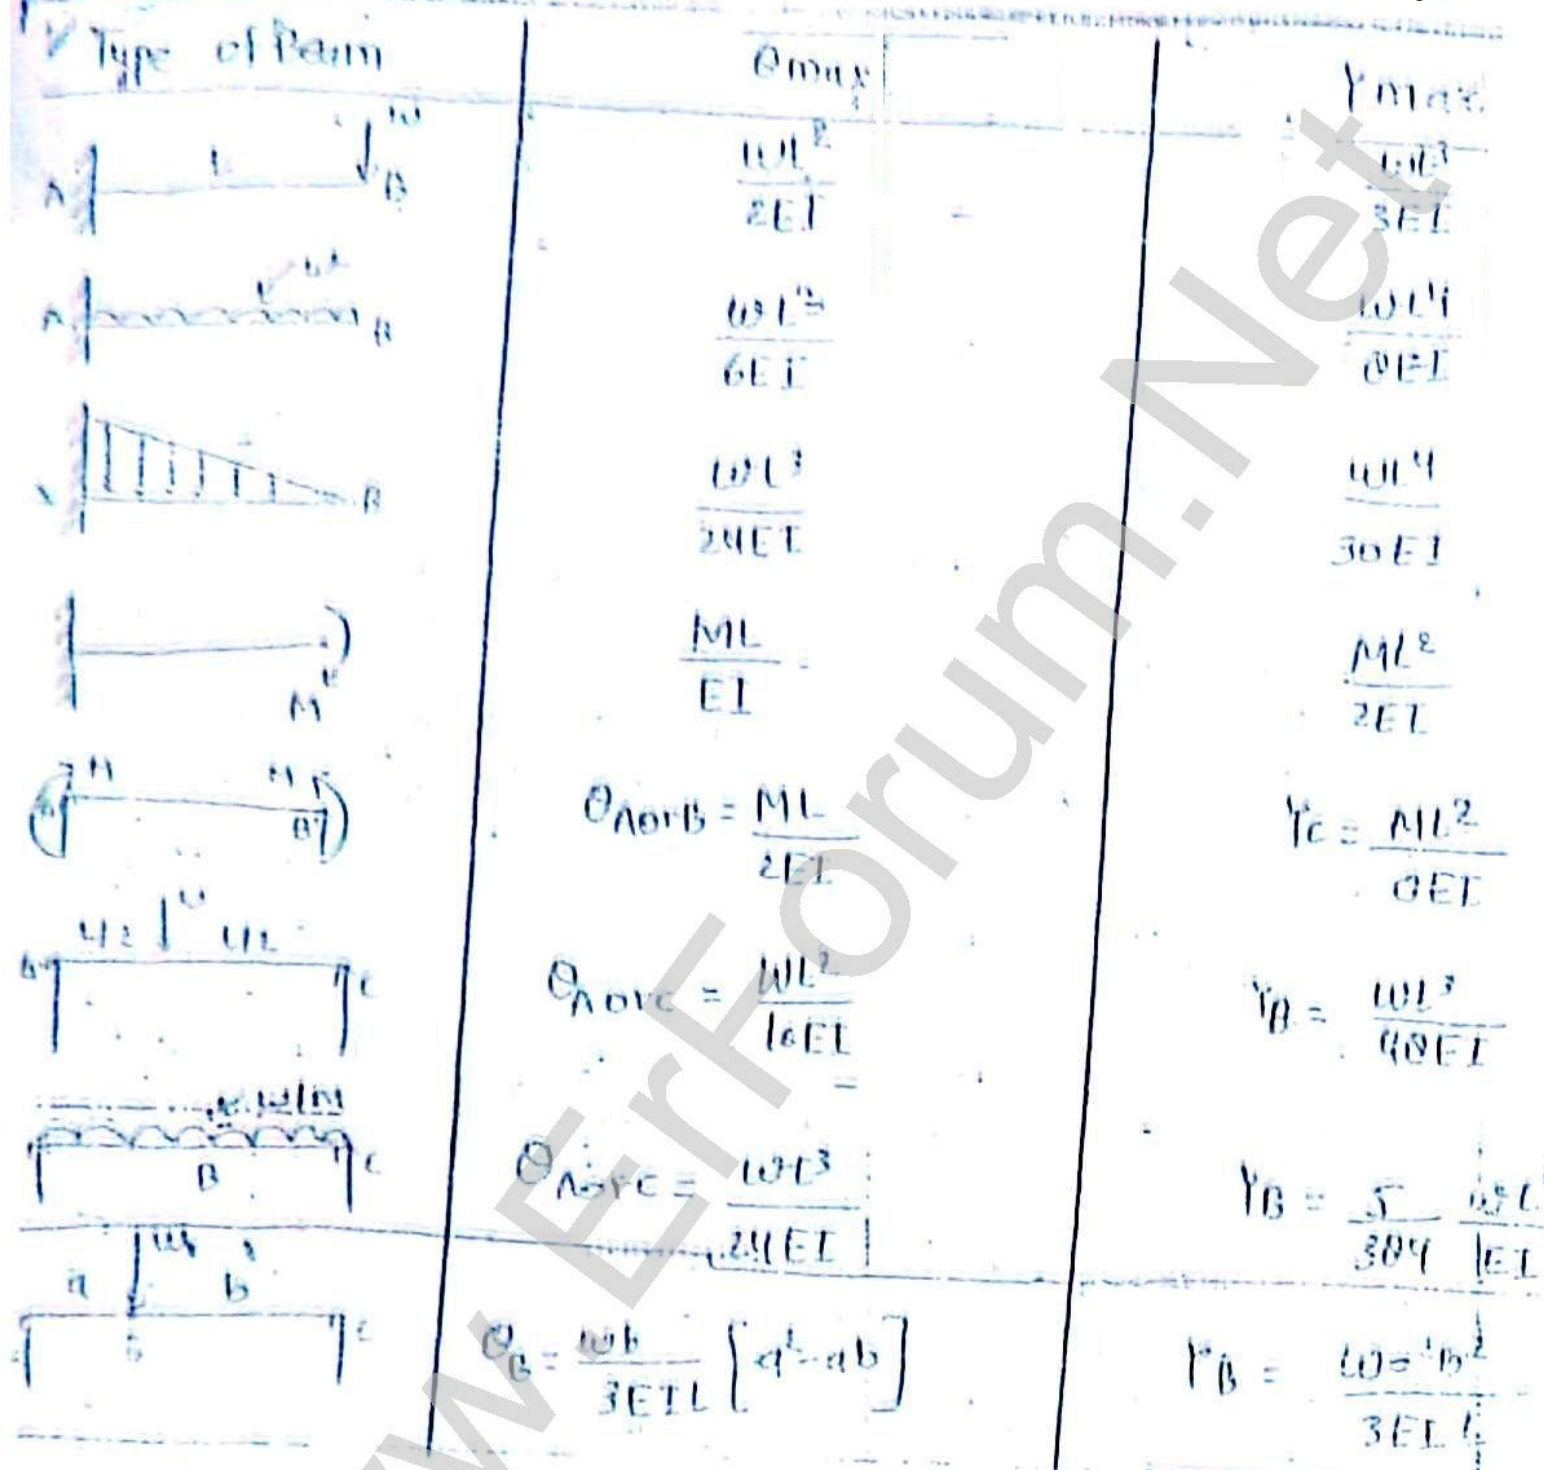 Type of Beam θmax Ymax
W
A L B WL²/2EI WL³/3EI
A B WL³/6EI WL⁴/8EI
B WL³/24EI WL⁴/30EI
M ML/EI ML²/2EI
M M
B θAorB = ML/2EI Yc = ML²/8EI
W
L/2 L/2
C θAorC = WL²/16EI YB = WL³/48EI
w/M
B C θAorC = WL³/24EI YB = 5/384 WL/EI
W
a b
B C θB = Wb/3EIL [a²-ab] YB = Wa²B²/3EIL
www.ErForum.Net